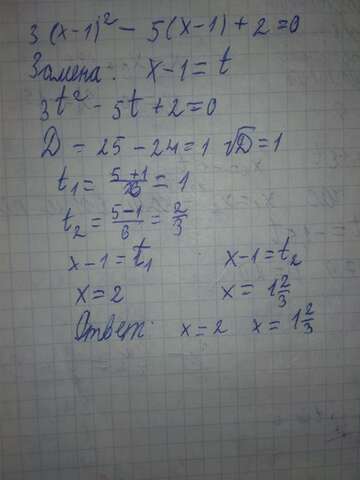 3(x-1)² - 5(x-1) + 2 = 0
Замена: x-1 = t
3t² - 5t + 2 = 0
D = 25 - 24 = 1 √D = 1
t₁ = (5+1)/6 = 1
t₂ = (5-1)/6 = 2/3
x-1 = t₁ x-1 = t₂
x = 2 x = 1 2/3
Ответ: x = 2 x = 1 2/3